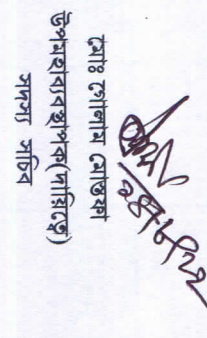 ২৪/৮/২২
মোঃ গোলাম মোস্তফা
উপমহাব্যবস্থাপক(দায়িত্বে)
সদস্য সচিব